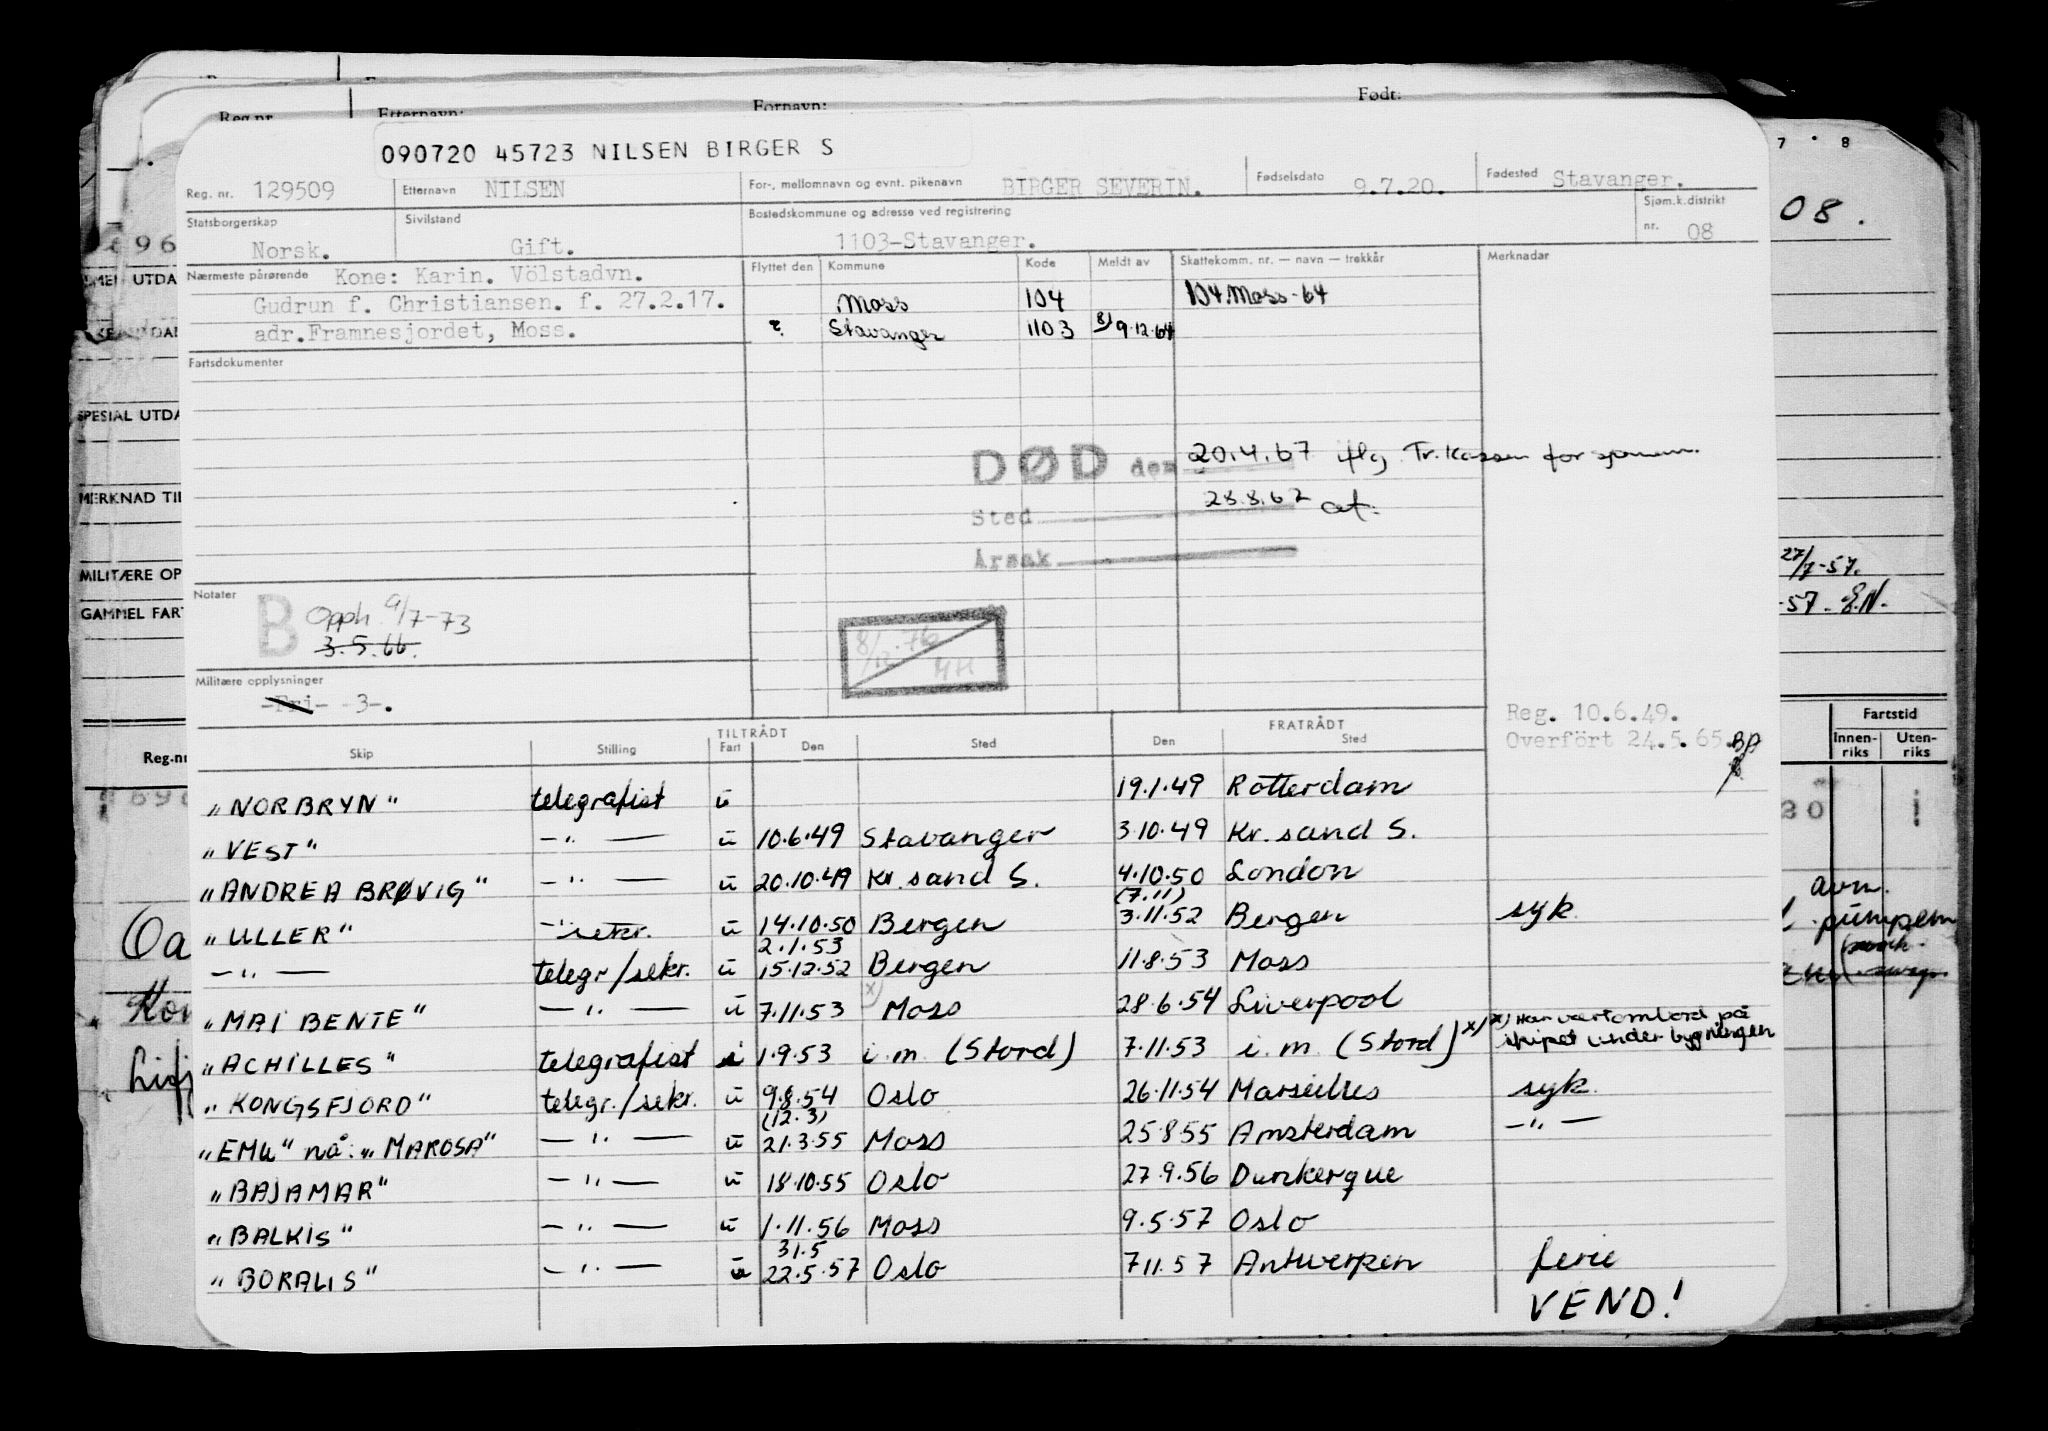 Reg.nr. Etternavn: Fornavn: Født:
090720 45723 NILSEN BIRGER S
Reg. nr. 129509 Etternavn NILSEN For-, mellomnavn og evnt. pikenavn BIRGER SEVERIN. Fødselsdato 9.7.20. Fødested Stavanger.
Statsborgerskap Norsk. Sivilstand Gift. Bostedskommune og adresse ved registrering 1103-Stavanger. Sjøm.k.distrikt nr. 08
Nærmeste pårørende Kone: Karin. Völstadvn.
Gudrun f. Christiansen. f. 27.2.17.
adr.Framnesjordet, Moss.
Flyttet den Kommune Kode Meldt av Skattekomm. nr. — navn — trekkår Merknader
Moss 104 104 Moss-64
? Stavanger 1103 8/9.12.64
Fartsdokumenter
DØD den 20.4.67 iflg. Tr.kassen for sjømenn.
28.8.67
Sted
Årsak
Notater
B Opph. 9/7-73
3.5.66.
8/12.76
MH
Militære opplysninger
-Fri- -3-.
Reg. 10.6.49.
Overfört 24.5.65.
TILTRÅDT FRATRÅDT
Skip Stilling Fart Den Sted Den Sted
"NORBRYN" telegrafist u 19.1.49 Rotterdam
"VEST" —"— u 10.6.49 Stavanger 3.10.49 Kr.sand S.
"ANDREA BRØVIG" —"— u 20.10.49 Kr.sand S. 4.10.50 London
(7.11)
"ULLER" —"— sekr. u 14.10.50 Bergen 3.11.52 Bergen syk
2.1.53
—"— telegr/sekr. u 15.12.52 Bergen 11.8.53 Moss
x)
"MAI BENTE" —"— u 7.11.53 Moss 28.6.54 Liverpool
x) Har vært ombord på
skipet under bygningen
"ACHILLES" telegrafist i 1.9.53 i.m. (Stord) 7.11.53 i.m. (Stord) x)
"KONGSFJORD" telegr./sekr. u 9.8.54 Oslo 26.11.54 Marseilles syk.
(12.3)
"EMU" nå: "MAROSA" —"— u 21.3.55 Moss 25.8.55 Amsterdam —"—
"BAJAMAR" —"— u 18.10.55 Oslo 27.9.56 Dunkerque
"BALKIS" —"— u 1.11.56 Moss 9.5.57 Oslo
31.5
"BORALIS" —"— u 22.5.57 Oslo 7.11.57 Antwerpen ferie
VEND!
SPESIAL UTDA
MERKNAD TIL
MILITÆRE OP
GAMMEL FAR
Reg.nr
7 • 8
08.
27/7-57.
-57. E.N.
Fartstid
Innen-riks Uten-riks
avm.
pumpem